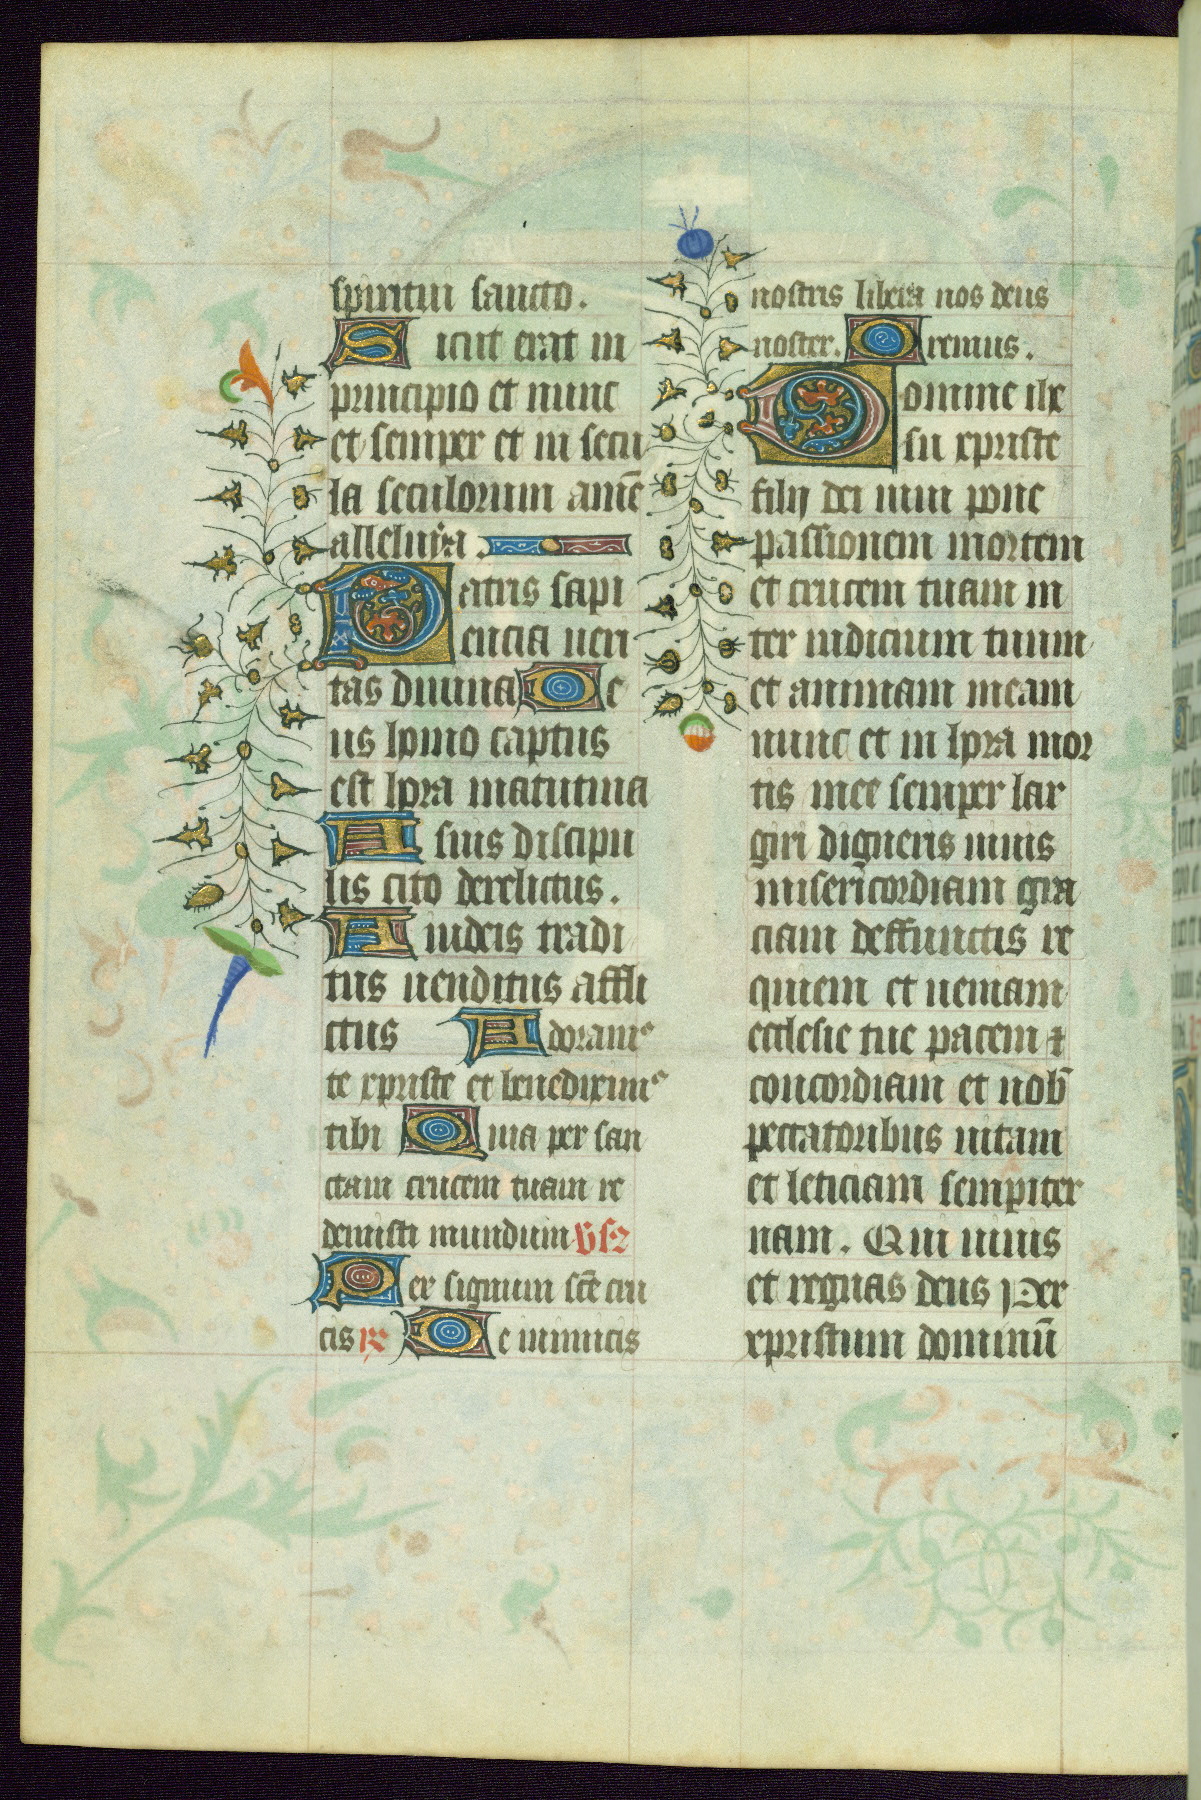 spiritui sancto.
Sicut erat in
principio et nunc
et semper et in secu
la seculorum amē
alleluya.
Patris sapi
encia ueri
tas diuina De
us homo captus
est hora matutina
A suis discipu
lis cito derelictus.
A iudeis tradi
tus uenditus affli
ctus Adoramꝰ
te xpriste et benediximꝰ
tibi Quia per san
ctam crucem tuam re
demisti mundum
Per signum scē cru
cis ℟ De inimicis
nostris libera nos deus
noster. Oremus.
Domine ihe
su xpriste
filij dei uiui pone
passionem mortem
et crucem tuam in
ter iudicium tuum
et animam meam
nunc et in hora mor
tis mee semper lar
giri digneris uiuis
misericordiam gra
ciam deffunctis re
quiem et ueniam
ecclesie tue pacem ⁊
concordiam et nob̄
peccatoribus uitam
et leticiam sempiter
nam. Qui uiuis
et regnas deus Per
xpristum dominū